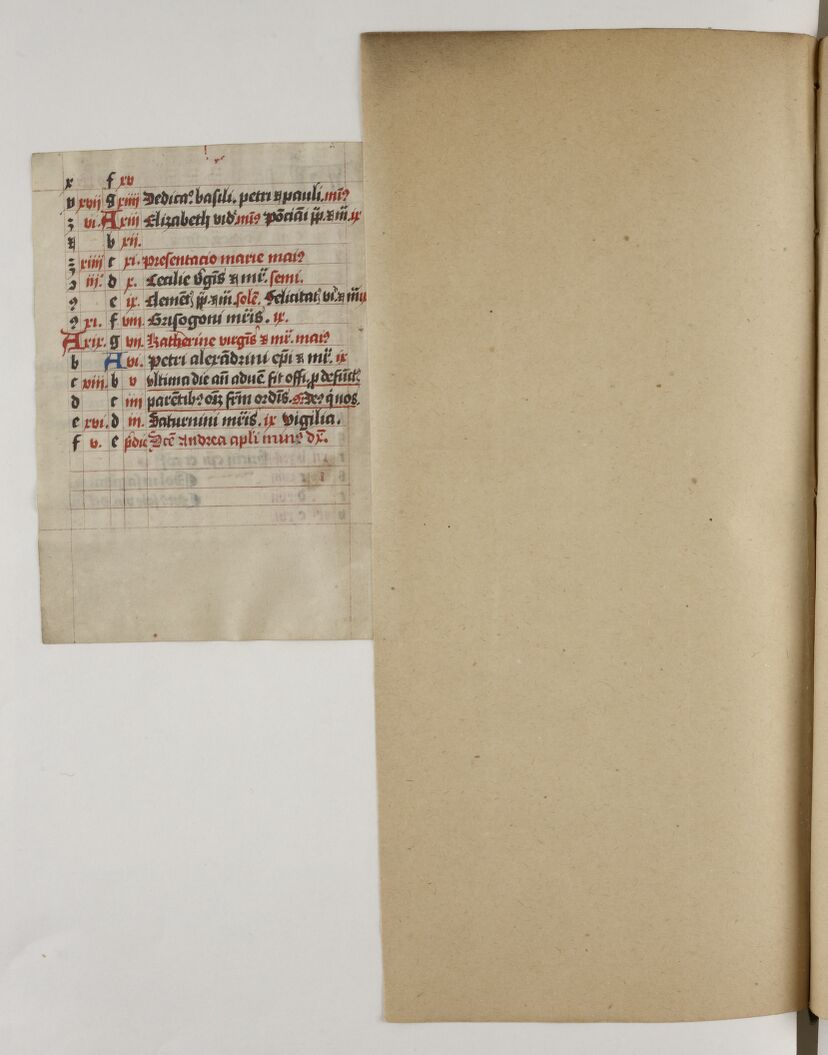 x f xv
v xvii g xiiii Dedicaᵒ. basili. petri ⁊ pauli. miꝰ
z vi. A xiii Elizabeth vid̛ miꝰ põciãi pp̃. ⁊ m̃. ix
b xii.
z xiiii c xi. presentacio marie maiꝰ
iii. d x. Cecilie v̛gĩs ⁊ mr̃. semi.
ꝯ e ix. Clemẽt̛ pp̃. ⁊ m̃. solẽ. Felicitat̛ vi̛. ⁊ m̃
ꝯ xi. f viii. Grisogoni mr̃is. ix.
A xix. g vii. Katherine virgĩs ⁊ mr̃. maiꝰ
b A vi. petri alexãdrini ep̃i ⁊ mr̃. ix
c viii. b v vltima die añ aduẽ. fit offi. ꝓ defũct̛.
d c iiii parẽtibꝰ frm̃ ordĩs.
e xvi. d iii. Saturnini mr̃is. ix vigilia.
f v. e p̃die Scẽ Andree apl̃i maiꝰ dx̃.